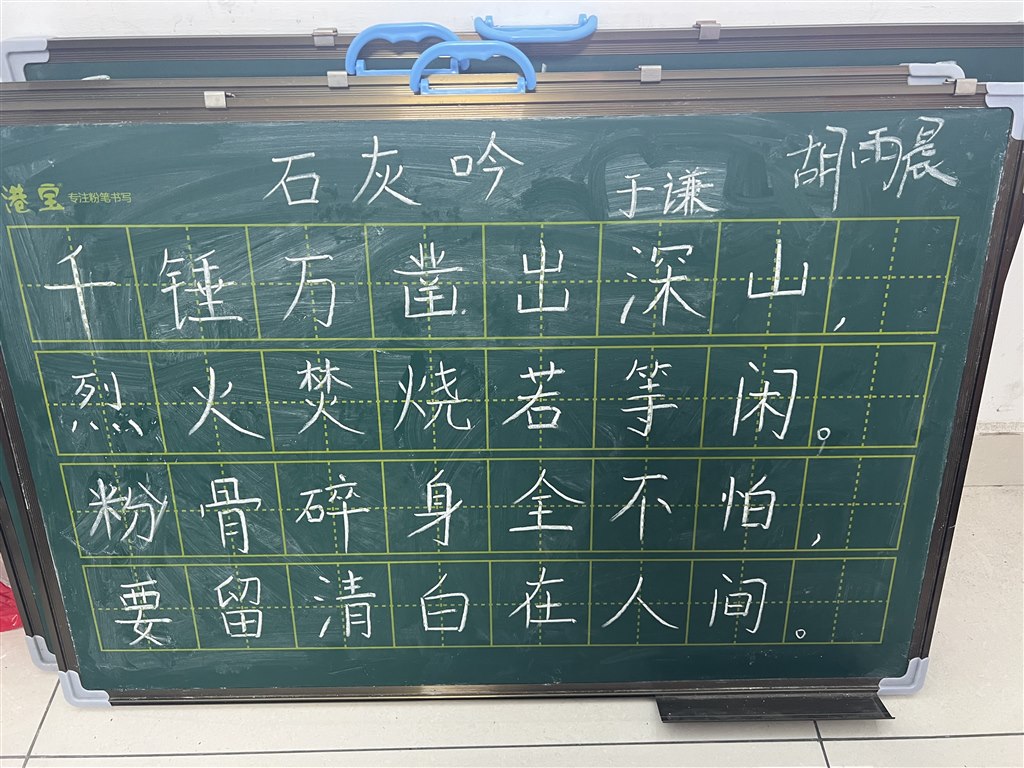 石灰吟 于谦 胡雨晨
港宝 专注粉笔书写
千锤万凿出深山，
烈火焚烧若等闲。
粉骨碎身全不怕，
要留清白在人间。